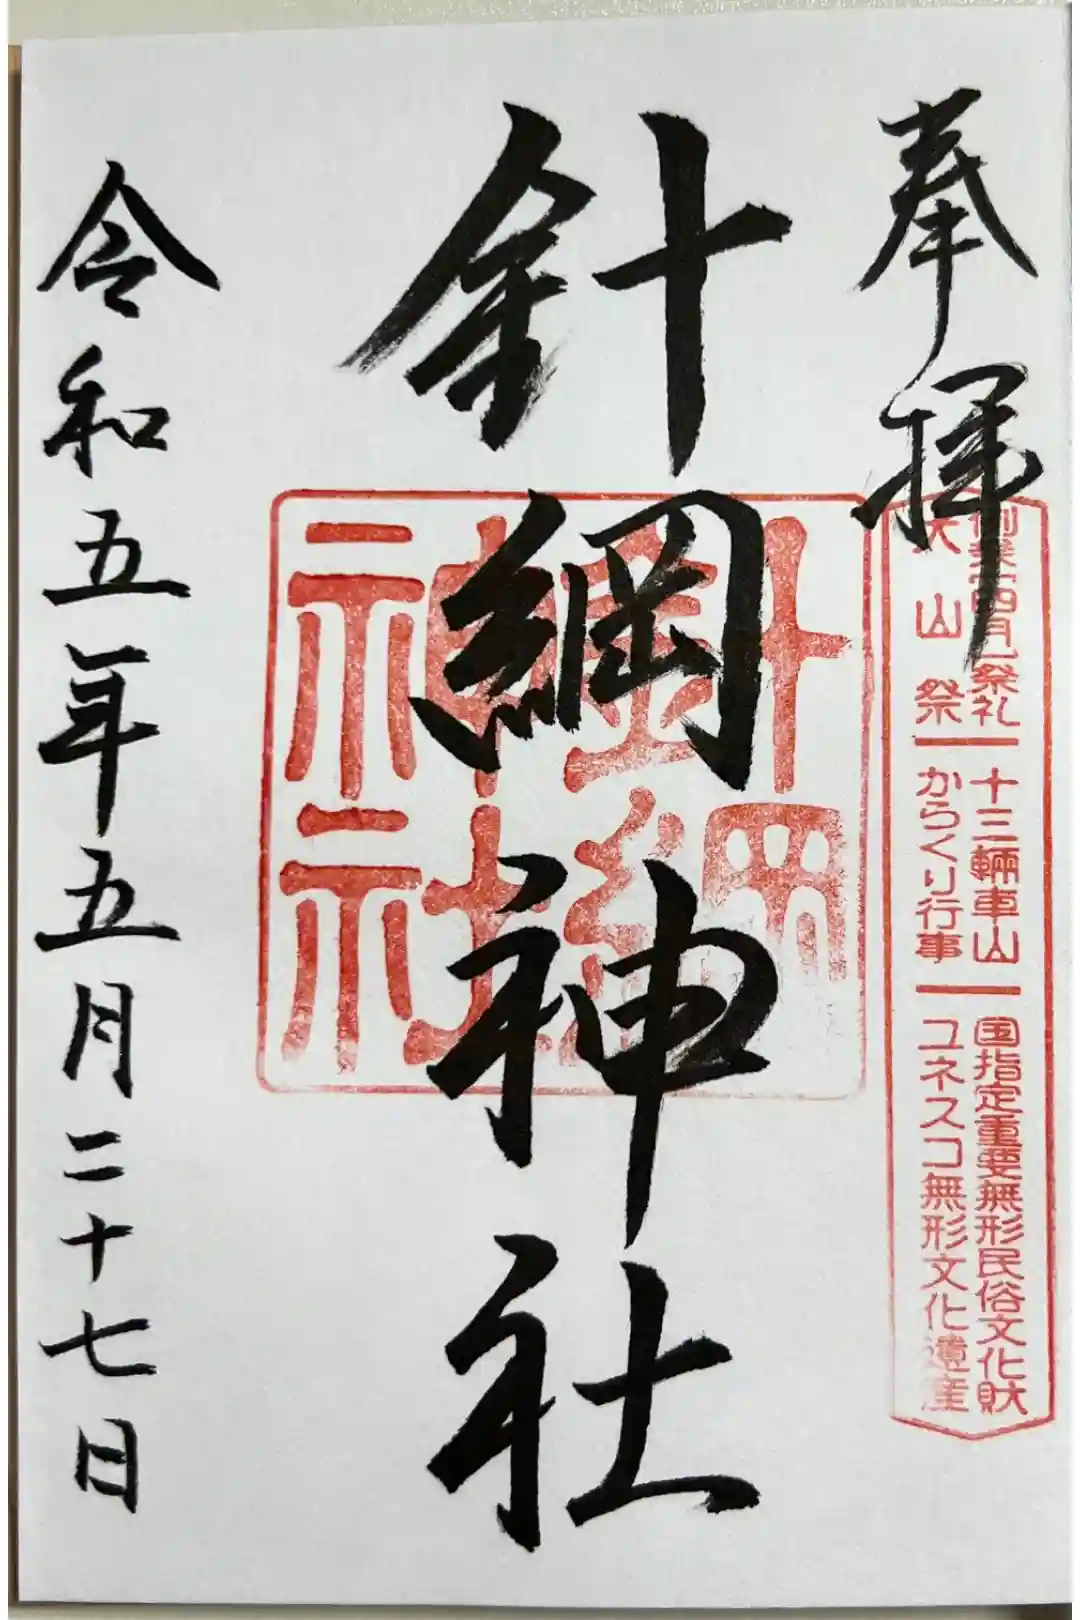 奉拝
例祭四月 祭礼
犬山祭
十三輛車山
からくり行事
国指定重要無形民俗文化財
ユネスコ無形文化遺産
針綱神社
針綱
神社
令和五年五月二十七日